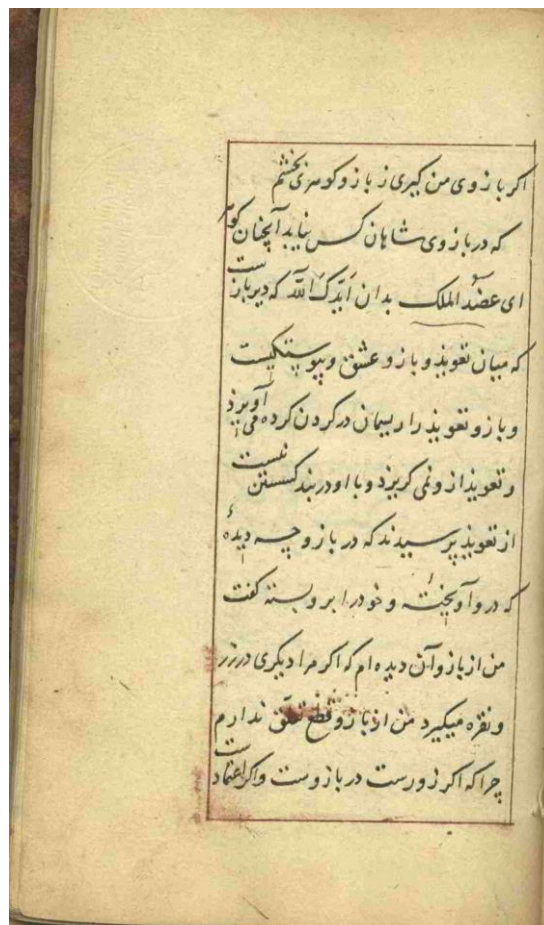 اکر بازوی من کیری ز بازو کوهری بخشم
که در بازوی شاهان کس نیابد آنچنان کوهر
ای عضد الملک بدان ایدک الله که دیر باز ست
که میان تعویذ و بازو عشق و پیوستکیست
و بازو تعویذ را ریسمان در کردن کرده می آویزد
و تعویذ ازو نمی کریزد و با او در بند کسستن نیست
از تعویذ پرسیدند که در بازو چه دیدهٔ
که درو آویختهٔ و خود را برو بسته کفت
من از بازو آن دیده ام که اکر مرا دیکری در زر
و نقره میکیرد من از بازو قطع تعلّق ندارم
چرا که اکر زورست در بازوست و اکر اعتماد ست